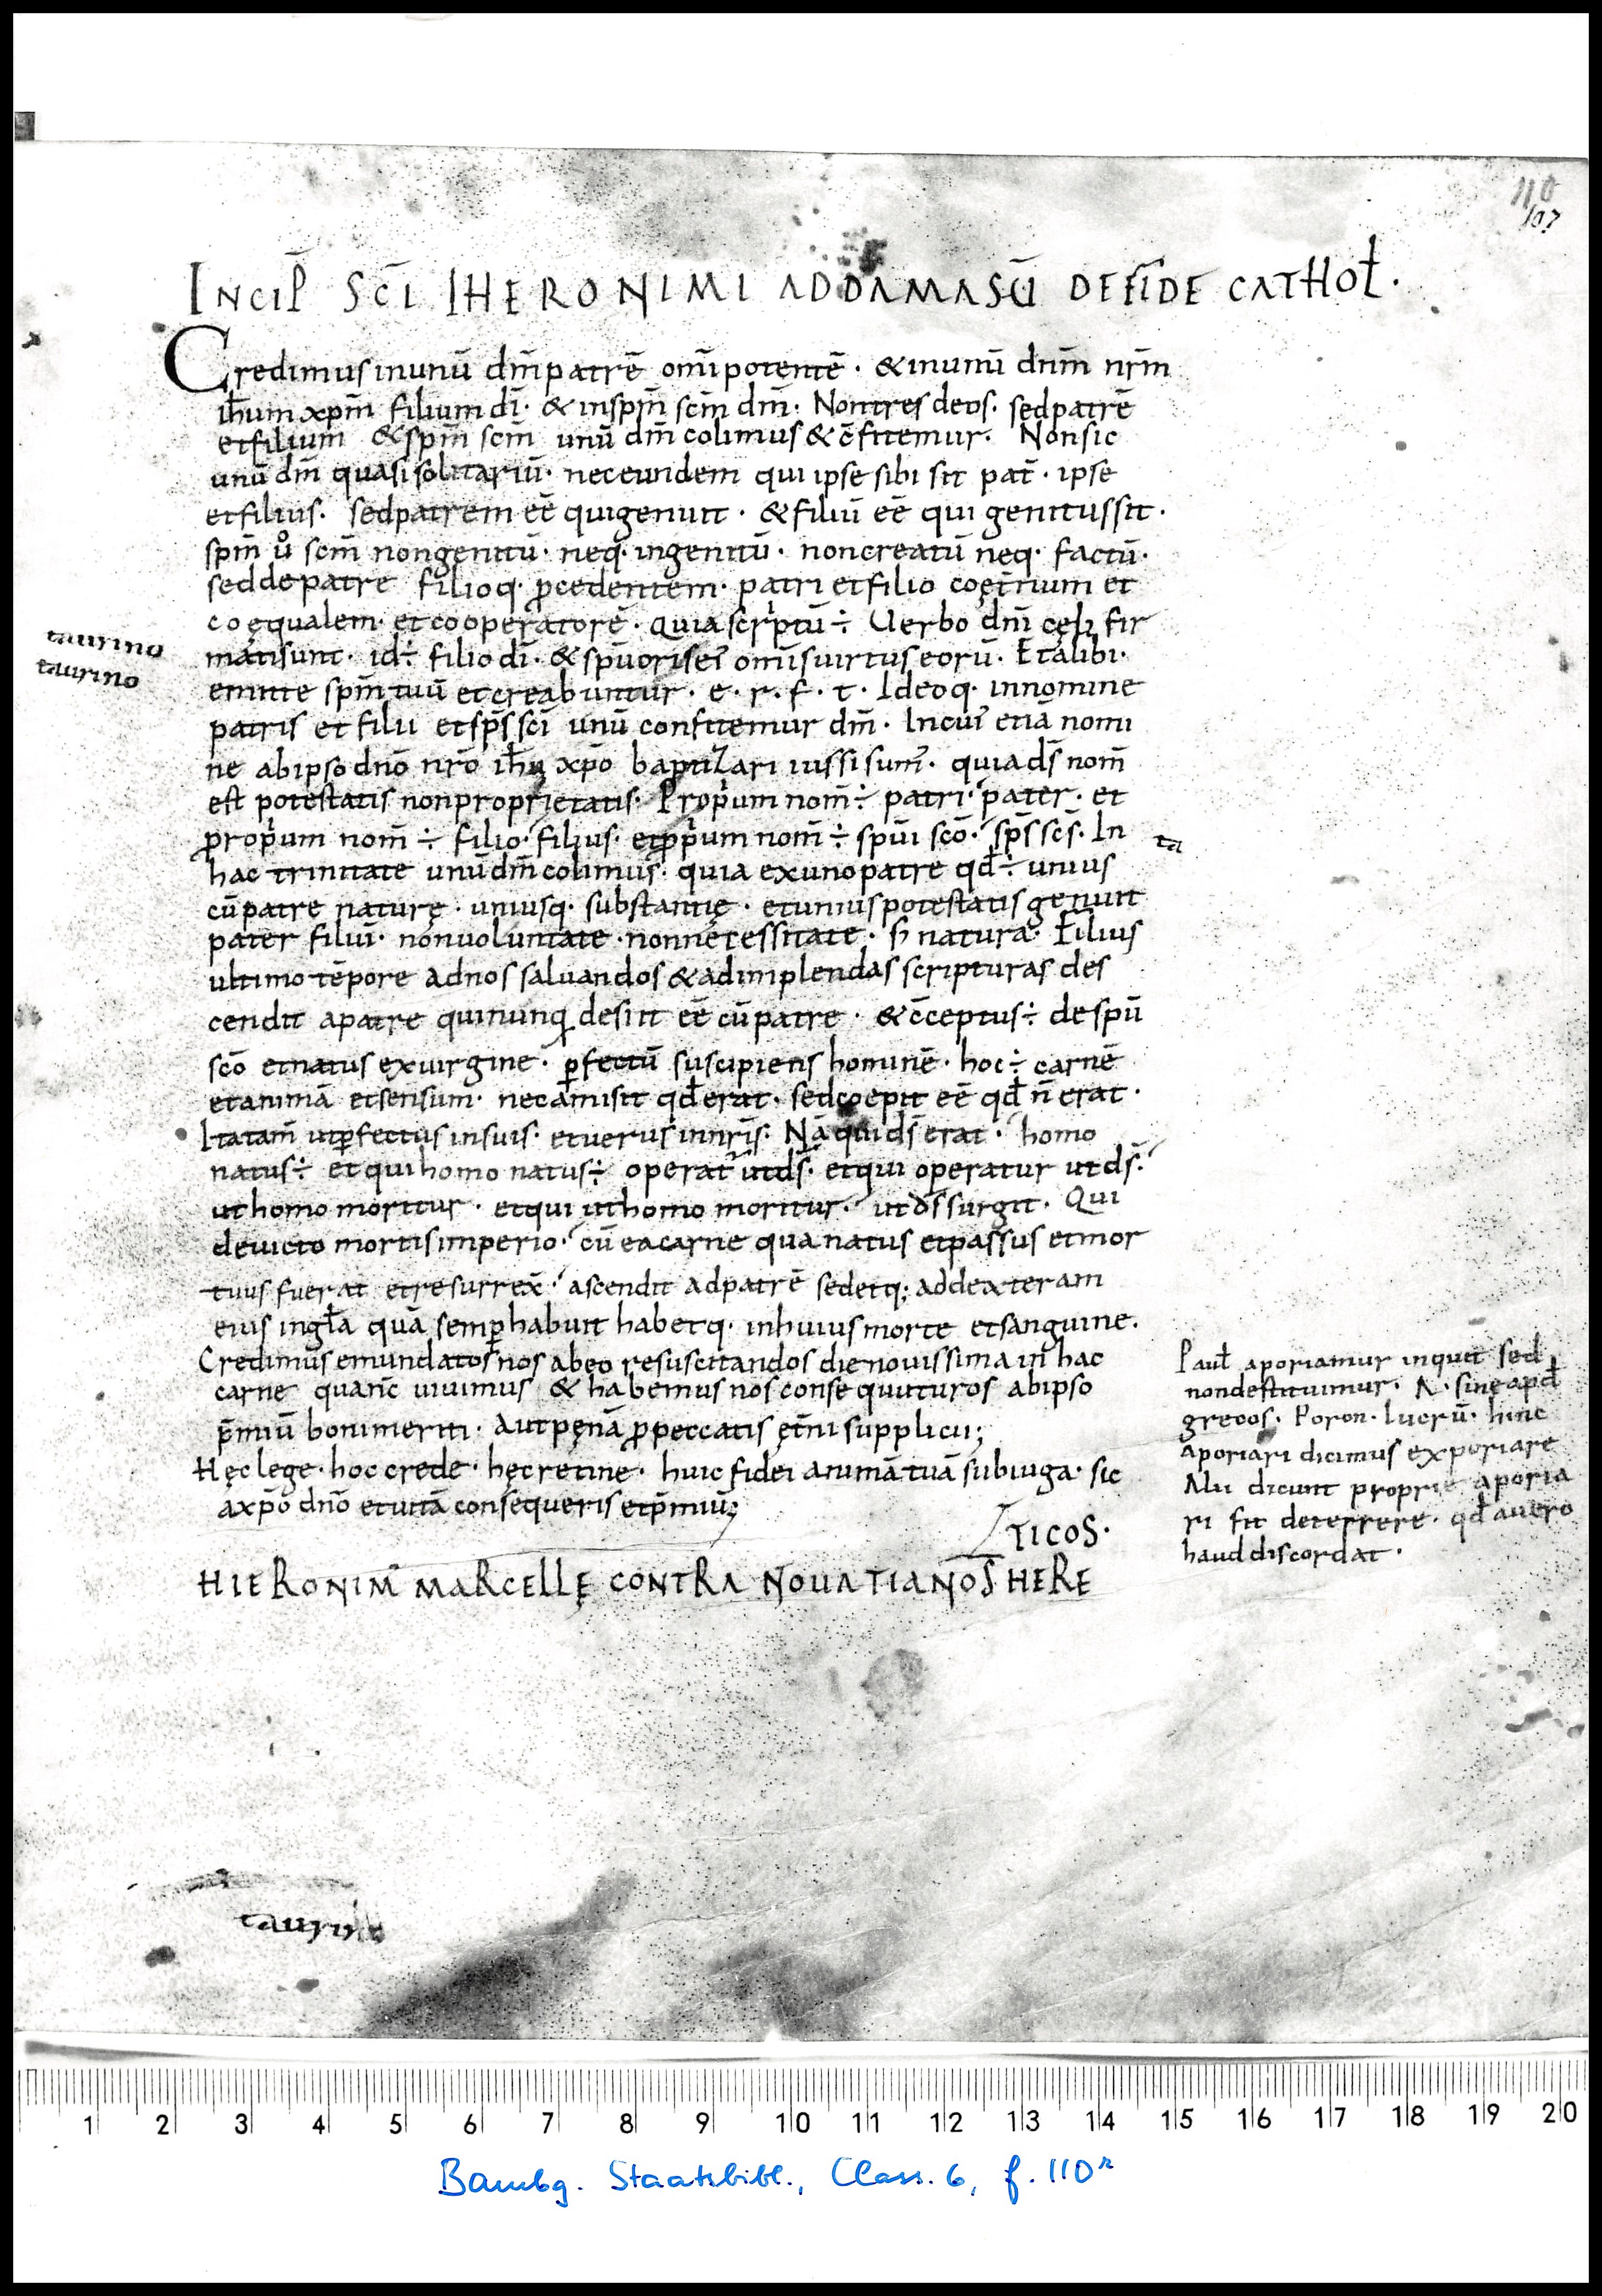 110
107
INCIP̄ SC̄I IHERONIMI ADDAMASŪ DEFIDE CATHOƗ·
Credimus inunū dm̄ patrē om̄ipotentē · & inunū dnm̄ nr̄m
ih̄um xpm̄ filium dī · & inspm̄ scm̄ dm̄ · Nontres deos · sedpatrē
etfilium & spm̄ scm̄ unū dm̄ colimus & c̄fitemur · Nonsic
unū dm̄ quasi solitariū · neceundem qui ipse sibi sit pat̄ · ipse
etfilius · sedpatrem eē̄ quigenuit · & filiū eē̄ qui genitussit ·
spm̄ ů scm̄ nongenitū · neq· ingenitū · noncreatū neq· factū ·
seddepatre filioq· p̄cedentem · patri etfilio coęt̄rnum et
coęqualem · et cooperatorē · quia scriptū ÷ Uerbo dnī cęli fir
taurino
taurino
matisunt · id ÷ filio dī · & spū orisei᾽ om̄is uirtus eorū · Et alibi ·
emitte spm̄ tuū et creabuntur · e · r · f · t · Ideoq· innomine
patris et filii et sps̄ sc̄i unū confitemur dm̄ · Incui᾽ etiā nomi
ne abipso dnō nrō ih̄u xpō baptizari iussi sum᾽ · quia ds̄ nom̄
est potestatis nonproprietatis · Proprium nom̄ ÷ patri · pater · et
proprium nom̄ ÷ filio · filius · et pp̄rium nom̄ ÷ spūi scō · sps̄ scs̄ · In
ta
hac trinitate unū dm̄ colimus · quia exunopatre qđ ÷ unius
cū patre naturę · uniusq· substantię · etuniuspotestatis genuit
pater filiū · nonuoluntate · nonnecessitate · s; natura · Filius
ultimo tēpore adnos saluandos & adimplendas scripturas des
cendit apatre quinunq̄ desiit eē̄ cū patre · & c̄ceptus ÷ de spū
scō et natus exuirgine · p̱fectū suscipiens hominē · hoc ÷ carnē
etanimā et sensum · necamisit qđ erat · sedcoepit eē̄ qđ n̄ erat ·
Itatam̄ utp̱fectus insuis · etuerus innris̄ · Nā qui ds̄ erat · homo
natus ÷ et qui homo natus ÷ operat᾽ utds̄ · etqui operatur utds̄ ·
uthomo moritur · etqui uthomo moritur · utds̄ surgit · Qui
deuicto mortisimperio · cū eacarne qua natus etpassus etmor
tuus fuerat et resurrex̄ · ascendit adpatrē sedetq; addexteram
eius inglā quā semp̱ habuit habetq· inhuius morte etsanguine ·
Credimus emundatos nos abeo resuscitandos dienouissima in hac
carne quanc̄ uiuimus & habemus nos consequuturos abipso
p̄miū bonimeriti · Aut pęnā p̱peccatis ęt̄ni supplicii;
Hęc lege · hoc crede · hęc retine · huic fidei animā tuā subiuga · sic
axpō dnō etuitā consequeris etp̄miū;
TICOS ·
HIERONIM᾽ MARCELLĘ CONTRA NOUATIANOS HERE
Pauƚ aporiamur inquit sed
nondestituimur · A · sine apđ
grecos · Poron · lucrū · hinc
aporiari dicimus exporiare
Alii dicunt proprie aporia
ri fit deterrere · qđ auero
haud discordat ·
taurino
1 2 3 4 5 6 7 8 9 10 11 12 13 14 15 16 17 18 19 20
Bambg. Staatsbibl., Class. 6, f. 110r